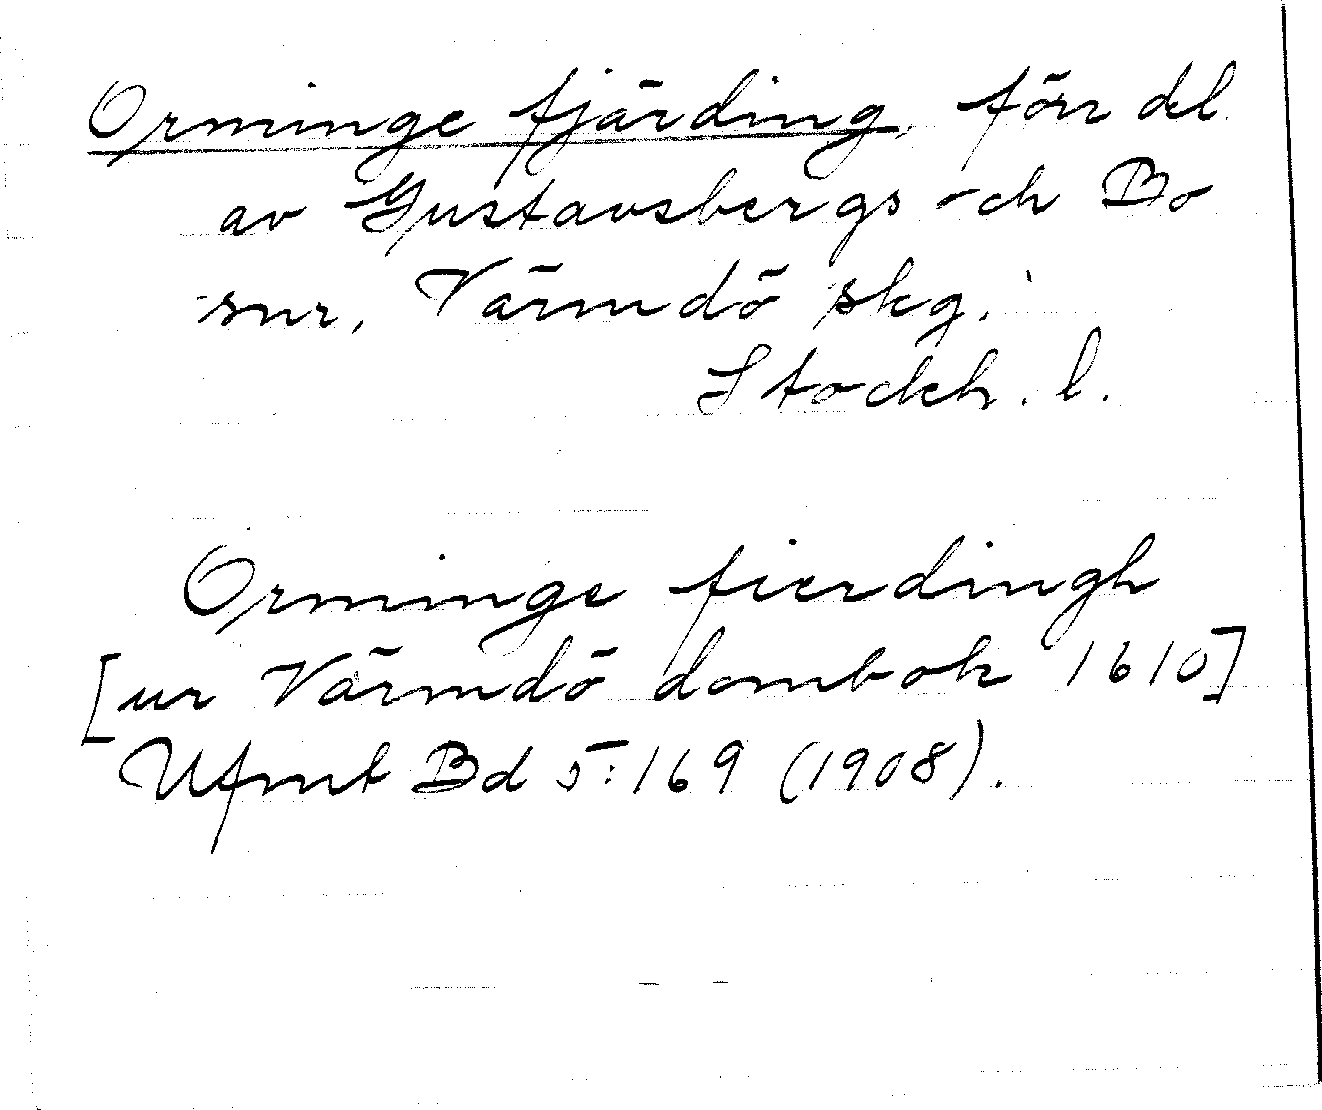 Orminge fjärding, förr del
av Gustavsbergs och Bo
snr, Värmdö skg,
Stockh. l.
Orminge fierdingh
[ur Värmdö dombok 1610]
Ufmt Bd 5:169 (1908).